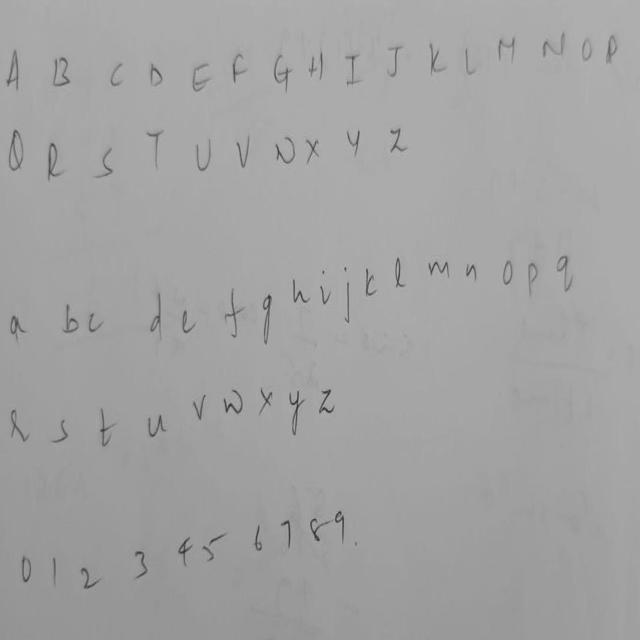 A B C D E F G H I J K L M N O P
Q R S T U V W X Y Z
a b c d e f g h i j k l m n o p q
r s t u v w x y z
0 1 2 3 4 5 6 7 8 9.